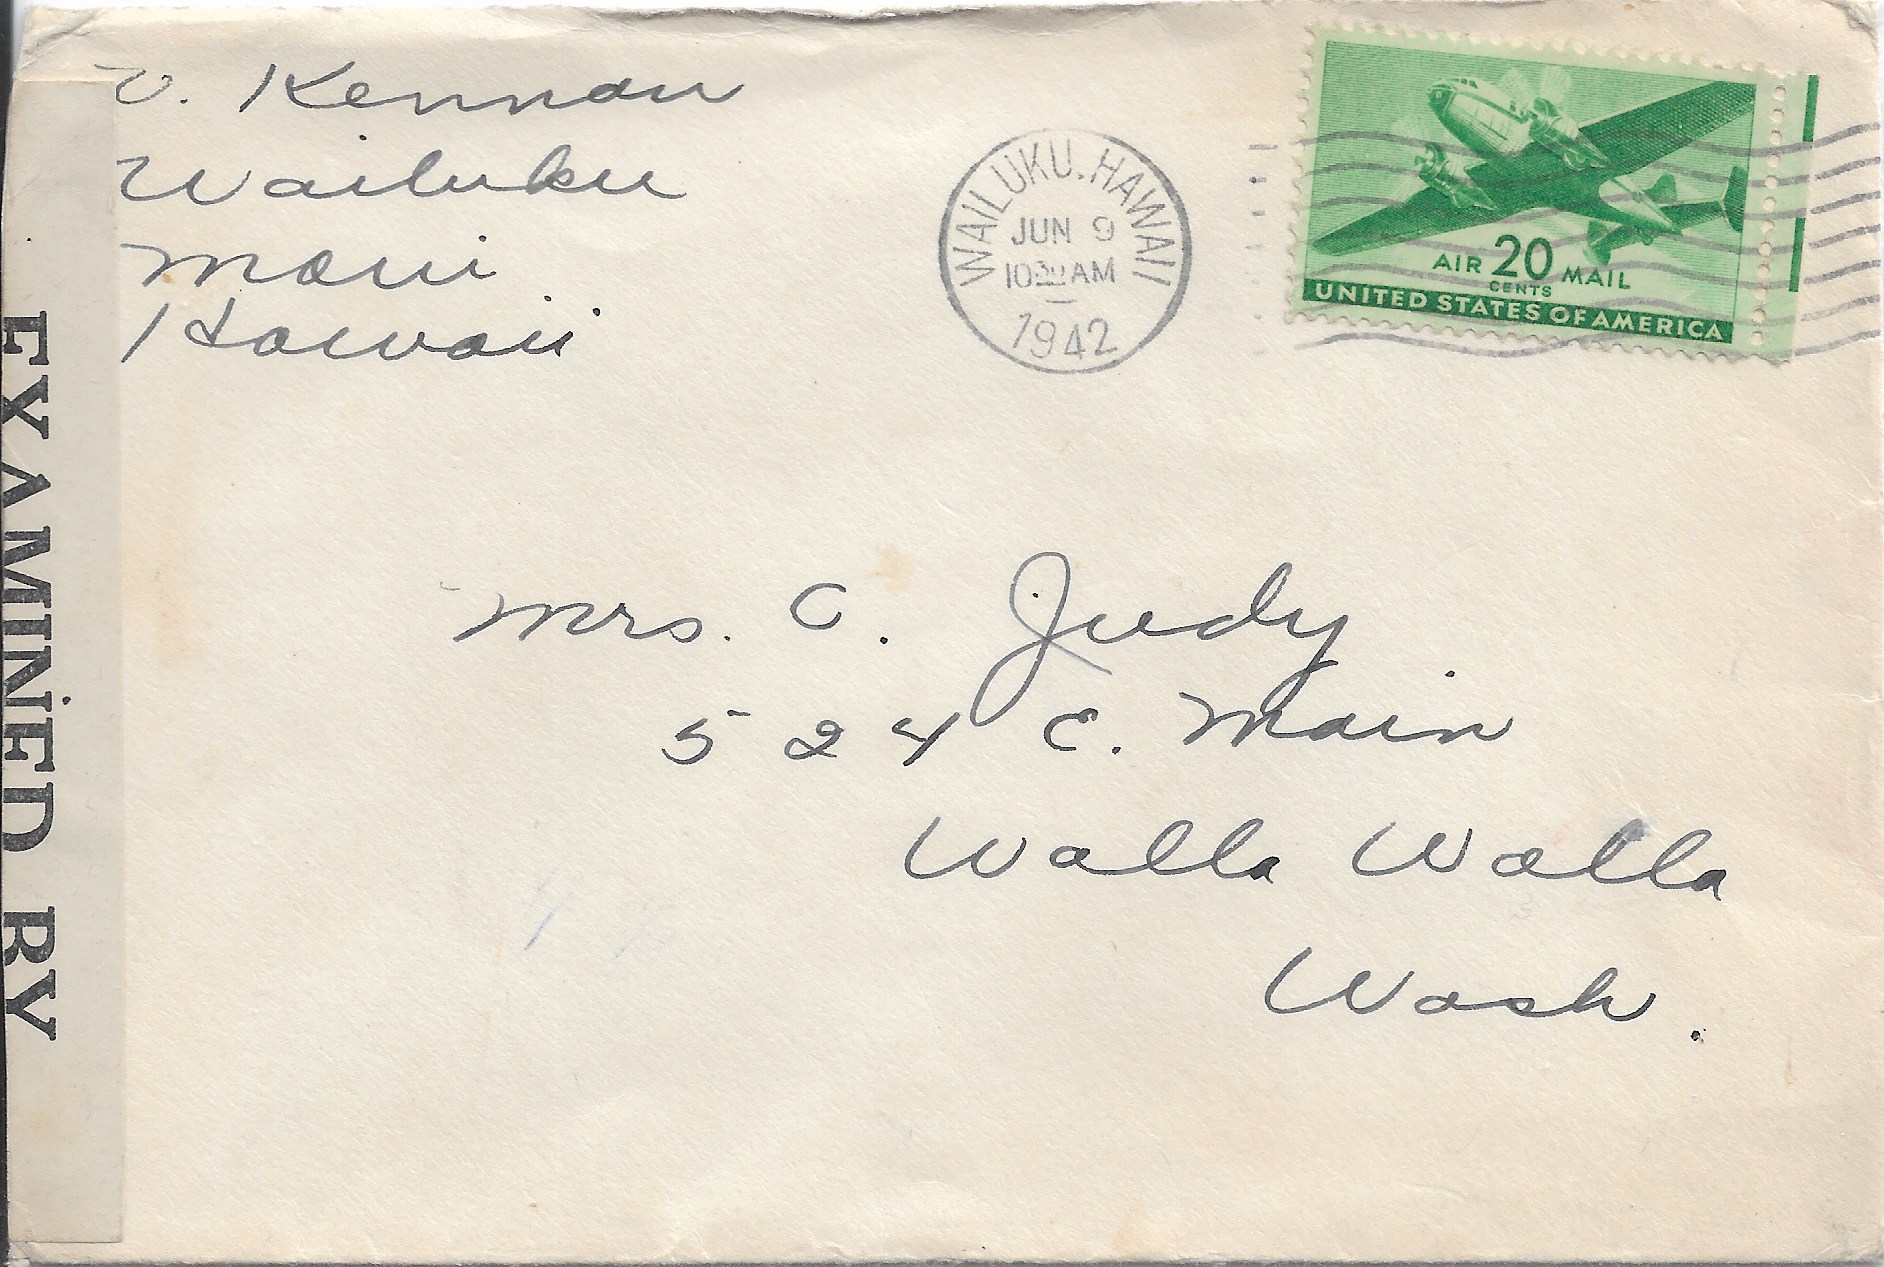 V. Kennan
Wailuku
Maui
Hawaii
WAILUKU. HAWAII
JUN 9
10 30 AM
1942
AIR 20 MAIL
CENTS
UNITED STATES OF AMERICA
EXAMINED BY
Mrs. C. Judy
524 E. Main
Walla Walla
Wash.